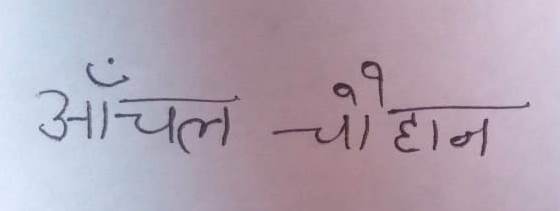 आँचल चौहान